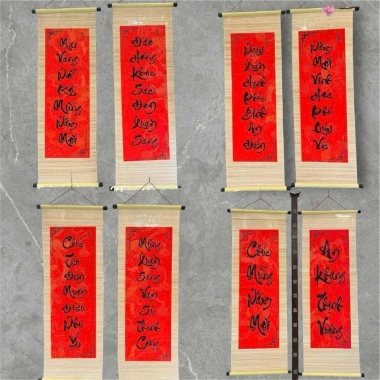 Mai
Vàng
Nở
Rộ
Mừng
Năm
Mới
Đào
Hồng
Khoe
Sắc
Đón
Xuân
Sang
Ngày
Xuân
Hạnh
Phúc
Bình
An
Đến
Năm
Mới
Vinh
Hoa
Phú
Quý
Về
Chúc
Tết
Đến
Muôn
Điều
Như
Ý
Mừng
Xuân
Sang
Vạn
Sự
Thành
Công
Chúc
Mừng
Năm
Mới
An
Khang
Thịnh
Vượng